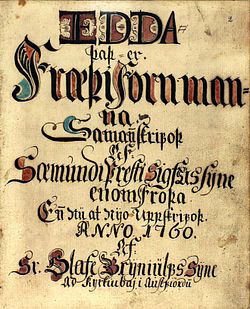 EDDA
2
þaþ er.
Fræþi forn man-
na
Samanskripok
af.
Sæmundi Presti Sigfussyne
enom Froþa
Enn nu at nyo Uppskripok.
ANNO 1760.
af
Sr. Olafe Bryniulfssyne
Ad Kyrkiubaj i Austfiordū